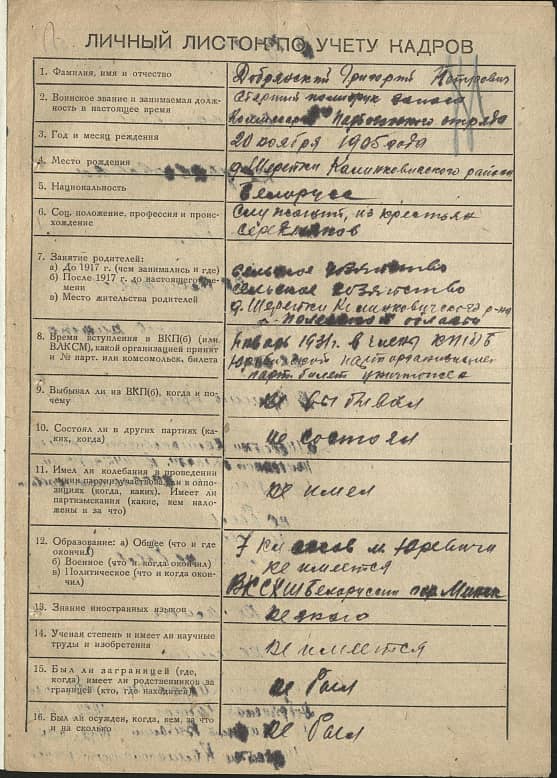 ЛИЧНЫЙ ЛИСТОК ПО УЧЕТУ КАДРОВ
1. Фамилия, имя и отчество
Добрянский Григорий Петрович
2. Воинское звание и занимаемая долж-
ность в настоящее время
Старший политрук запаса
партизанского отряда
3. Год и месяц рождения
20 ноября 1905 года
4. Место рождения
д. Шарейки Калинковичского района
5. Национальность
Белорусс
6. Соц. положение, профессия и проис-
хождение
Служащий, из крестьян
середняков
7. Занятие родителей:
а) До 1917 г. (чем занимались и где)
б) После 1917 г. до настоящего вре-
мени
в) Место жительства родителей
сельское хозяйство
сельское хозяйство
Калинковичского р-на
Полесской области
8. Время вступления в ВКП(б) (или
ВЛКСМ), какой организацией принят
и № парт. или комсомольск. билета
Январь 1931 г. в члены
парторганизацией
парт. билет уничтожен
9. Выбывал ли из ВКП(б), когда и по-
чему
не выбывал
10. Состоял ли в других партиях (ка-
ких, когда)
не состоял
11. Имел ли колебания в проведении
линии партии, участвовал ли в оппо-
зициях (когда, каких). Имеет ли
партвзыскания (какие, кем нало-
жены и за что)
не имел
12. Образование: а) Общее (что и где
окончил)
б) Военное (что и когда окончил)
в) Политическое (что и когда окон-
чил)
7 классов м. Юревичи
не имеется
ВКСХШ Белоруссии гор. Минск
13. Знание иностранных языков
не знаю
14. Ученая степень и имеет ли научные
труды и изобретения
не имеется
15. Был ли заграницей (где,
когда) имеет ли родственников за
границей (кто, где находится)
не был
16. Был ли осужден, когда, кем, за что
и на сколько
не был